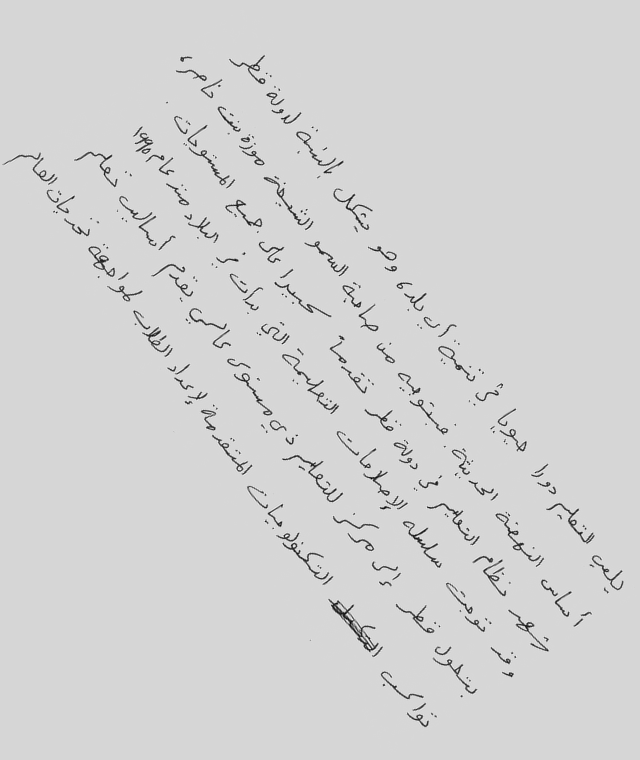 يلعب التعليم دورا حيويا في تنمية أي بلد، وهو يشكل بالنسبة لدولة قطر
أساس النهضة الحديثة. فبتوجيه من صاحبة السمو الشيخة موزة بنت ناصر،
شهد نظام التعليم في دولة قطر تقدما كبيرا على جميع المستويات.
وقد توجت سلسلة الإصلاحات التعليمية التي بدأت في البلاد منذ عام ١٩٩٥
بتحول قطر إلى مركز للتعليم ذي مستوى عالمي يقدم أساليب تعليم
تواكب التكنولوجيات المتقدمة لإعداد الطلاب لمواجهة تحديات العالم